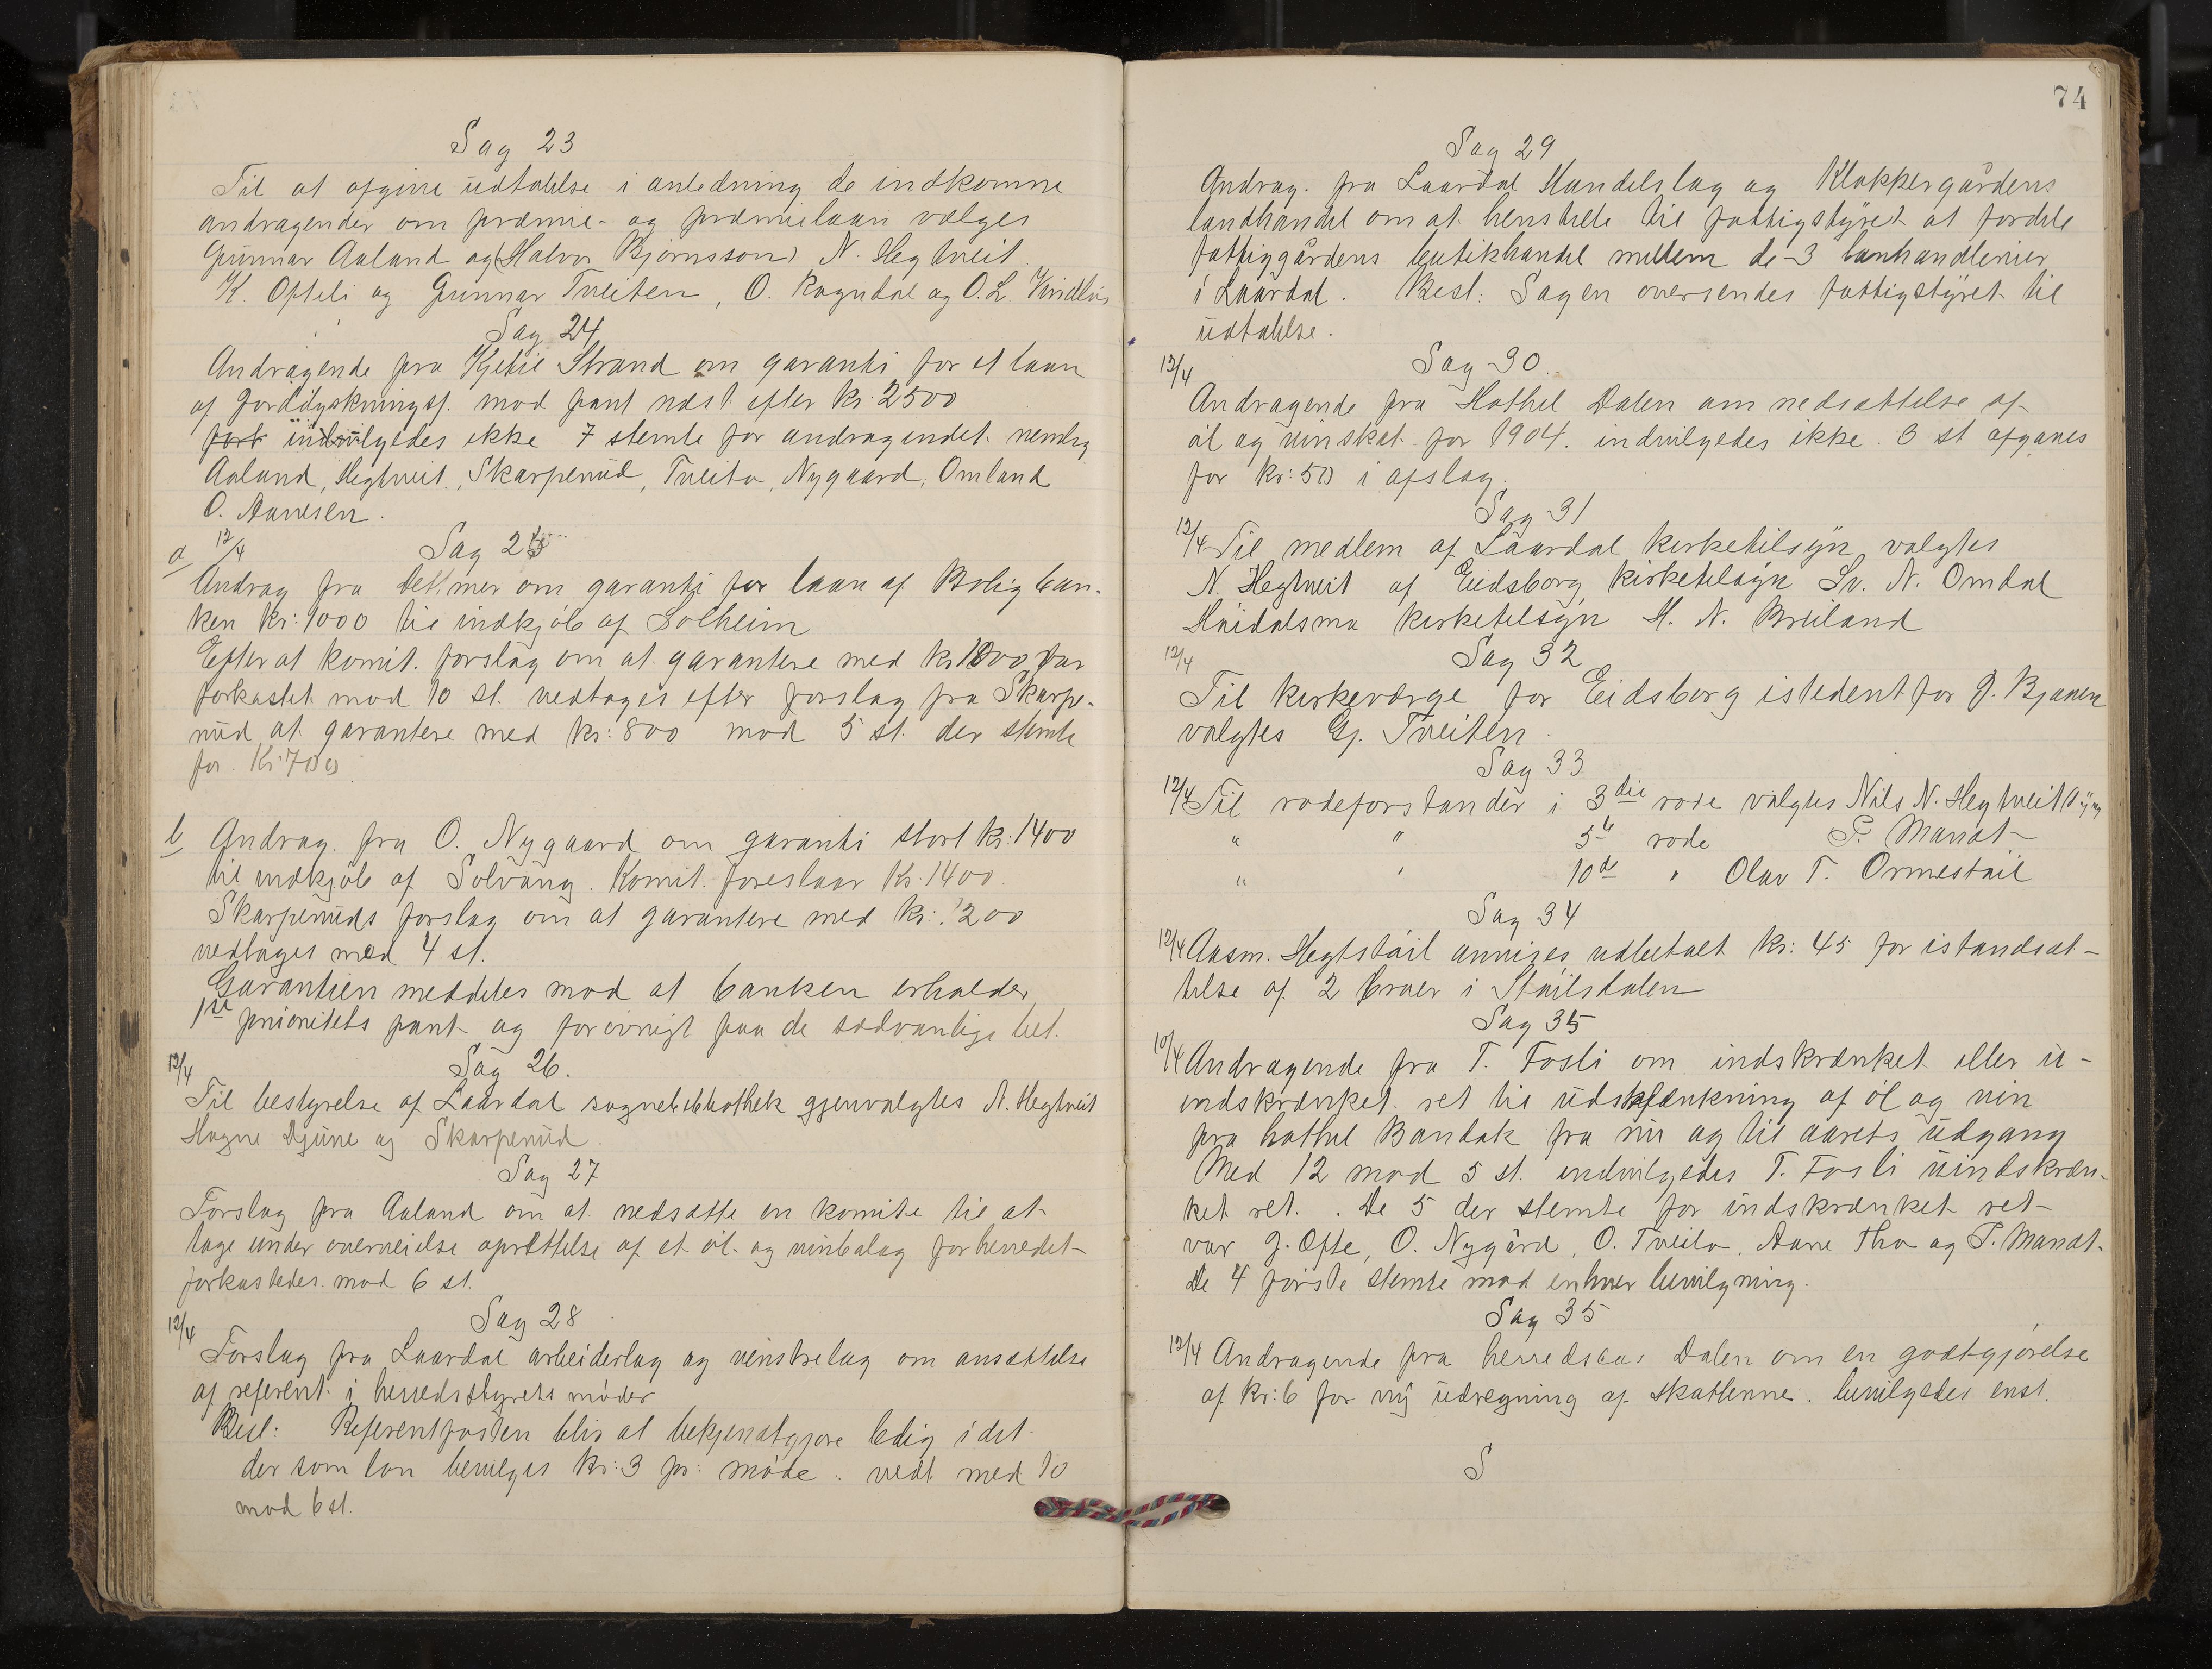 Sag 23
Til at afgive udtalelse i anledning de indkomne
andragender om præmie- og præmielaan vælges
Gunnar Aaland og (Halvor Bjørnsson) N. Hegtveit
K. Ofteli og Gunnar Tveiten, O. Rogndal og O. L. Vindlus
Sag 24
Andragende fra Kjetil Strand om garanti for et laan
af Jorddyrkningsf. mod pant næst efter kr. 2500
indvilgedes ikke 7 stemte for andragendet nemlig
Aaland, Hegtveit, Skarperud, Tveito, Nygaard, Omland
O. Aanesen.
a 12/4 Sag 25
Andrag fra Dettmer om garanti for laan af Boligban-
ken kr: 1000 til indkjøb af Solheim
Efter at komit. forslag om at garantere med kr 1000 var
forkastet mod 10 st. vedtages efter forslag fra Skarpe-
rud at garantere med kr: 800 mod 5 st. der stemte
for Kr 700
b Andrag. fra O. Nygaard om garanti stort kr: 1400
til indkjøb af Solvang. Komit. foreslaar Kr. 1400.
Skarperuds forslag om at garantere med kr: 1200
vedtages med 4 st.
Garantien meddeles mod at banken erholder
1ste prioritets pant og forøvrigt paa de sædvanlige bet.
12/4 Sag 26.
Til bestyrelse af Laardal sognebibliothek gjenvalgtes N. Hegtveit
Hogne Djuve og Skarperud.
Sag 27
Forslag fra Aaland om at nedsætte en komite til at
tage under overveielse oprettelse af et øl- og vinbolag for herredet
forkastedes mod 6 st.
Sag 28
12/4 Forslag fra Laardal arbeiderlag og venstrelag om ansættelse
af referent i herredsstyrets møder
Besl: Referentposten blir at bekjendtgjøre ledig idet
der som løn bevilges kr: 3 pr. møde. vedt med 10
mod 6 st.
74
Sag 29
Andrag. fra Laardal Handelslag og Klokkergårdens
landhandel om at henstille til fattigstyret at fordele
fattiggårdens butikhandel mellem de 3 lanhandlerier
i Laardal. Besl: Sagen oversendes fattigstyret til
udtalelse.
12/4 Sag 30.
Andragende fra Hothel Dalen om nedsættelse af
øl og vinskat for 1904. indvilgedes ikke. 3 st afgaves
for kr: 50 i afslag.
Sag 31
12/4 Til medlem af Laardal kirketilsyn valgtes
N. Hegtveit af Eidsborg kirketilsyn Sv. N. Omdal
Høidalsmo kirketilsyn H. N. Breiland
12/4 Sag 32
Til kirkeværge for Eidsborg istedentfor G. Bjaaen
valgtes Gj. Tveiten.
Sag 33
12/4 Til rodeforstander i 3die rode valgtes Nils N. Hegtveit
" " 5te rode P. Mandt
" " 10de " Olav T. Ormestøil
Sag 34
12/4 Aasm. Hegtstøil anvises udbetalt kr: 45 for istandsæt-
telse af 2 broer i Støilsdalen
Sag 35
10/4 Andragende fra T. Fosli om indskrænket eller u-
indskrænket ret til udskjænkning af øl og vin
fra hothel Bandak fra nu og til aarets udgang
Med 12 mod 5 st. indvilgedes T. Fosli uindskræn-
ket ret. . De 5 der stemte for indskrænket ret
var G. Ofte, O. Nygård, O. Tveito, Aane Tho og P. Mandt.
De 4 første stemte mod enhver bevilgning.
Sag 35
12/4 Andragende fra herredskas Dalen om en godtgjørelse
af kr: 6 for ny udregning af skatterne. bevilgedes enst.
S